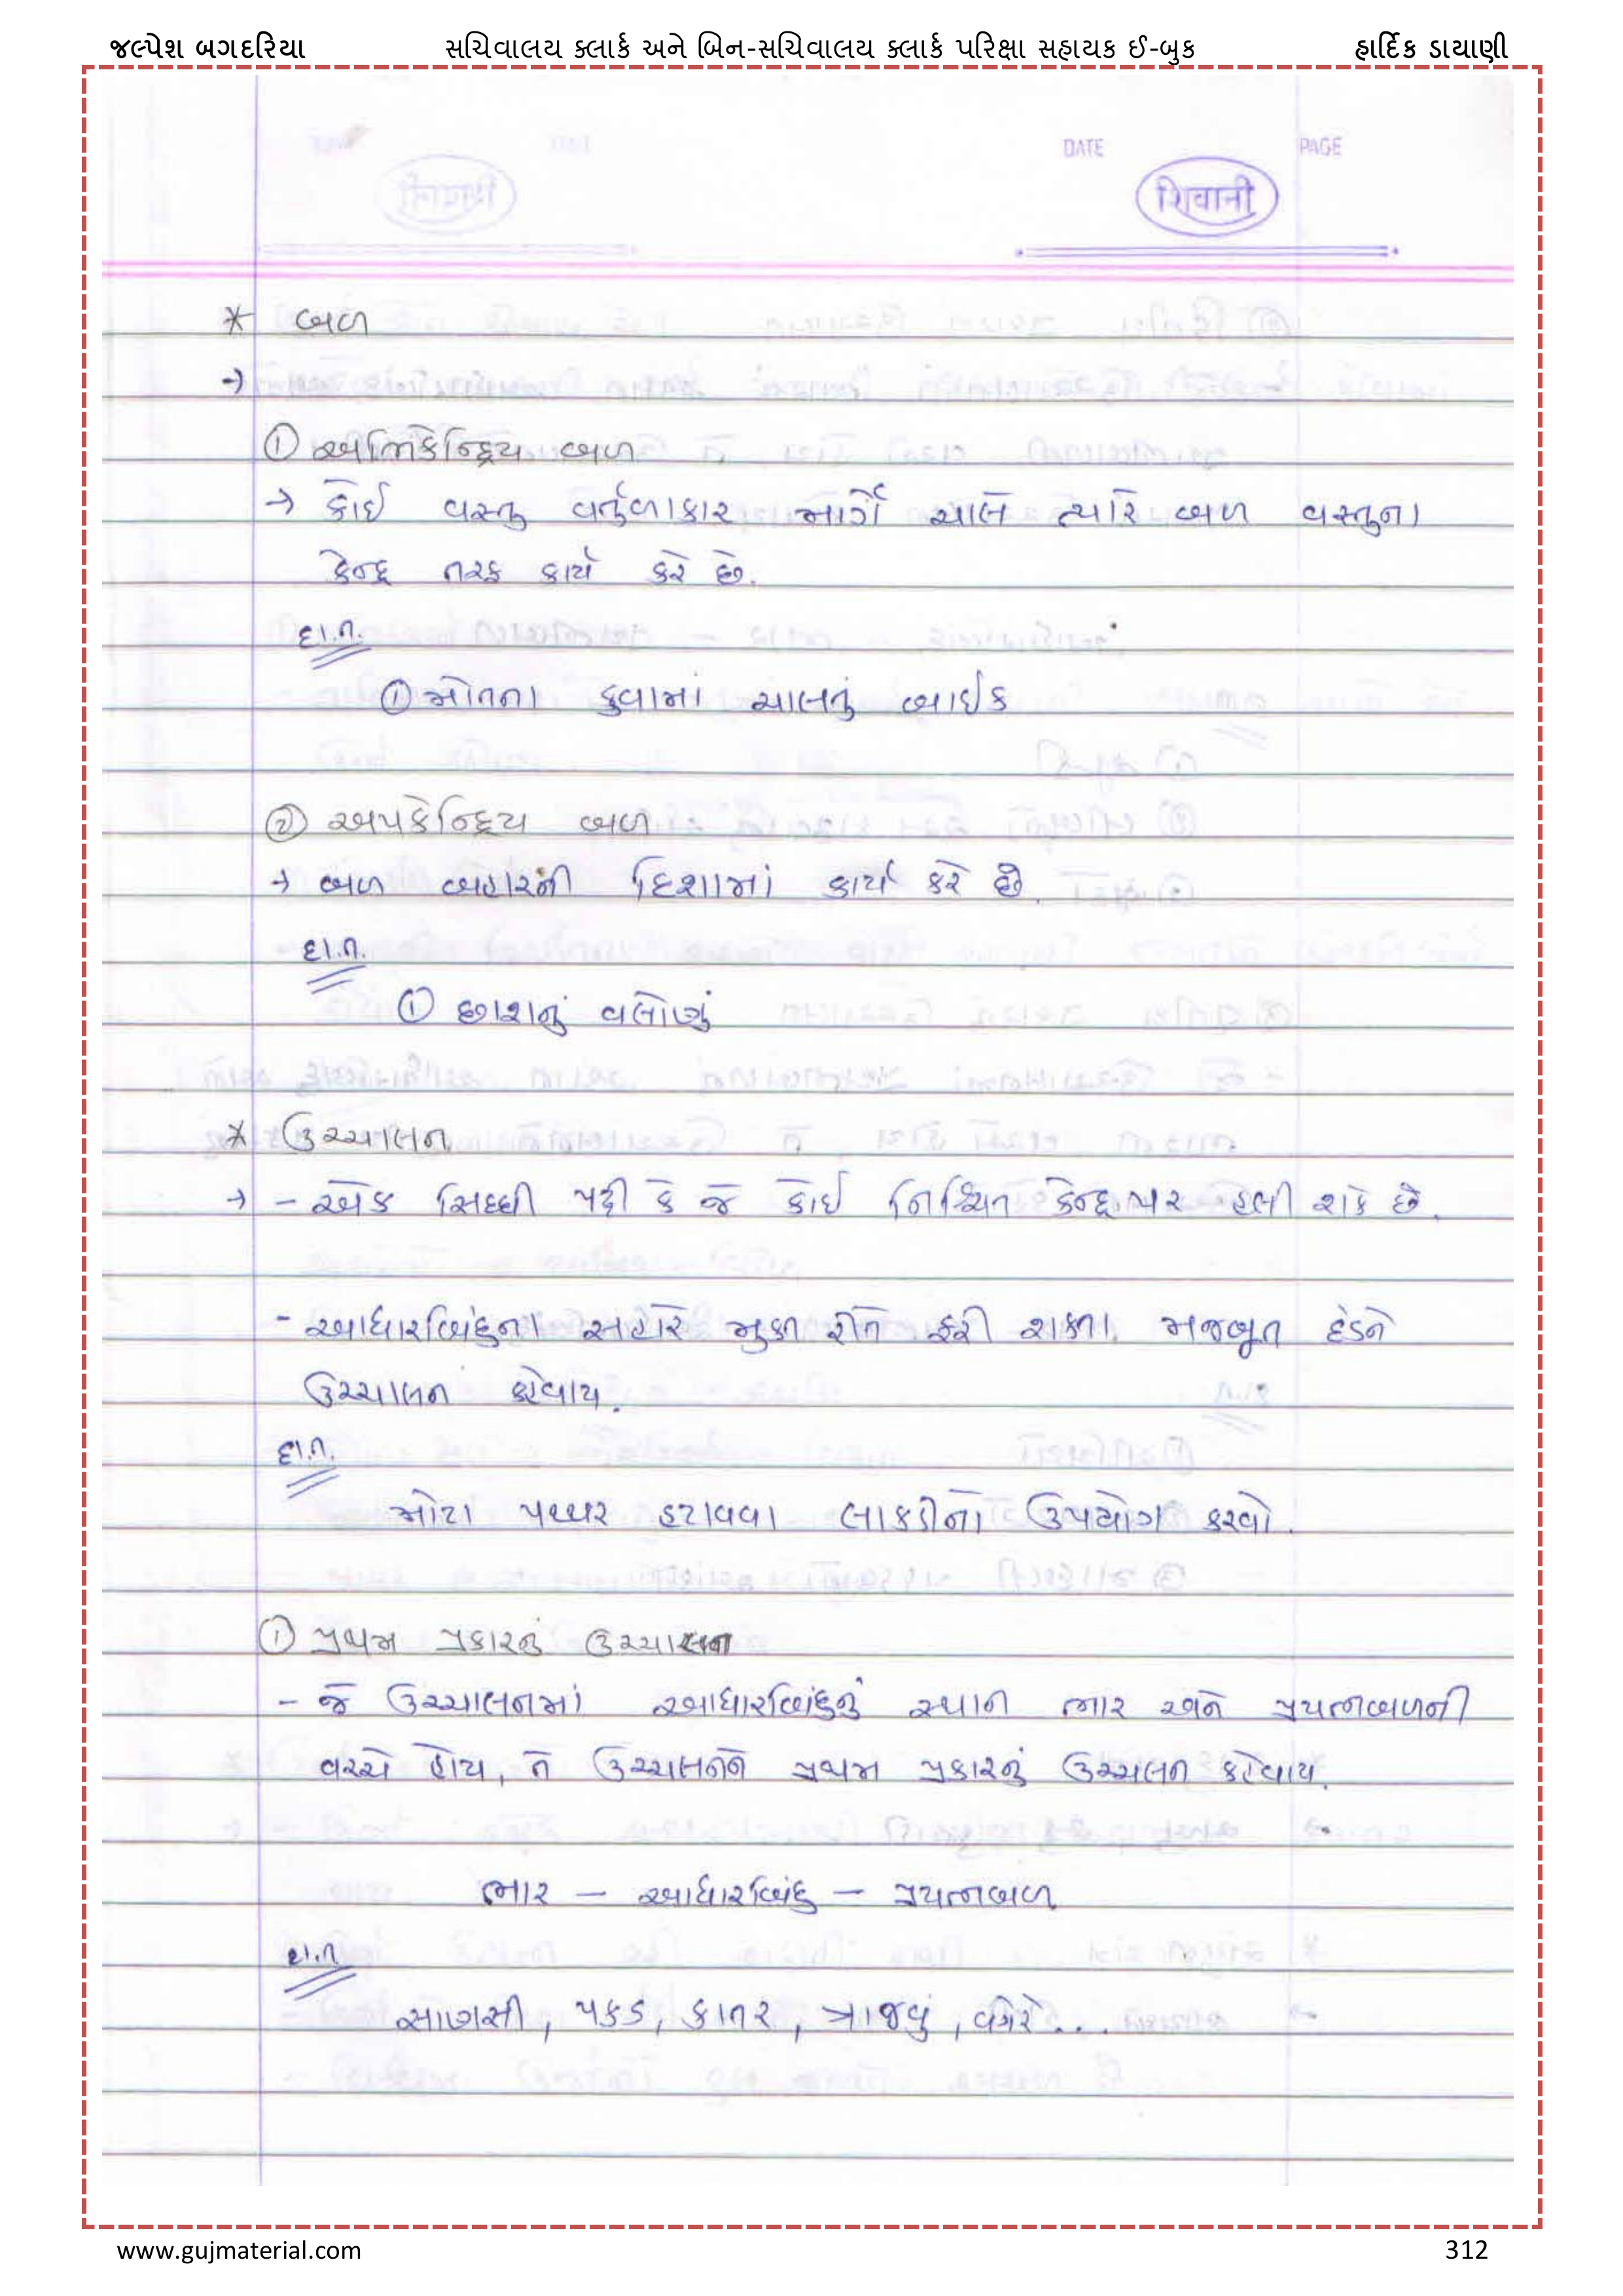 જલ્પેશ બગદરિયા સચિવાલય ક્લાર્ક અને બિન-સચિવાલય ક્લાર્ક પરિક્ષા સહાયક ઈ-બુક હાર્દિક ડાયાણી
DATE PAGE
शिवानी
* બળ
→
① અભિકેન્દ્રિય બળ
→ કોઈ વસ્તુ વર્તુળાકાર માર્ગે ચાલે ત્યારે બળ વસ્તુના
કેન્દ્ર તરફ કાર્ય કરે છે.
દા.ત.
① મોતના કુવામાં ચાલતું બાઈક
② અપકેન્દ્રિય બળ
→ બળ બહારની દિશામાં કાર્ય કરે છે.
દા.ત.
① છાશનું વલોણું
* ઉચ્ચાલન
→ - એક સિધ્ધી પટ્ટી કે જે કોઈ નિશ્ચિત કેન્દ્ર પર હલી શકે છે.
- આધારબિંદુના સહારે મુક્ત રીતે ફરી શકતા મજબૂત દંડને
ઉચ્ચાલન કહેવાય.
દા.ત.
મોટા પથ્થર હટાવવા લાકડીનો ઉપયોગ કરવો.
① પ્રથમ પ્રકારનું ઉચ્ચાલન
- જે ઉચ્ચાલનમાં આધારબિંદુનું સ્થાન ભાર અને પ્રયત્નબળની
વચ્ચે હોય, તે ઉચ્ચાલનને પ્રથમ પ્રકારનું ઉચ્ચાલન કહેવાય.
ભાર - આધારબિંદુ - પ્રયત્નબળ
દા.ત
સાણસી, પકડ, કાતર, ત્રાજવું, વગેરે...
www.gujmaterial.com 312